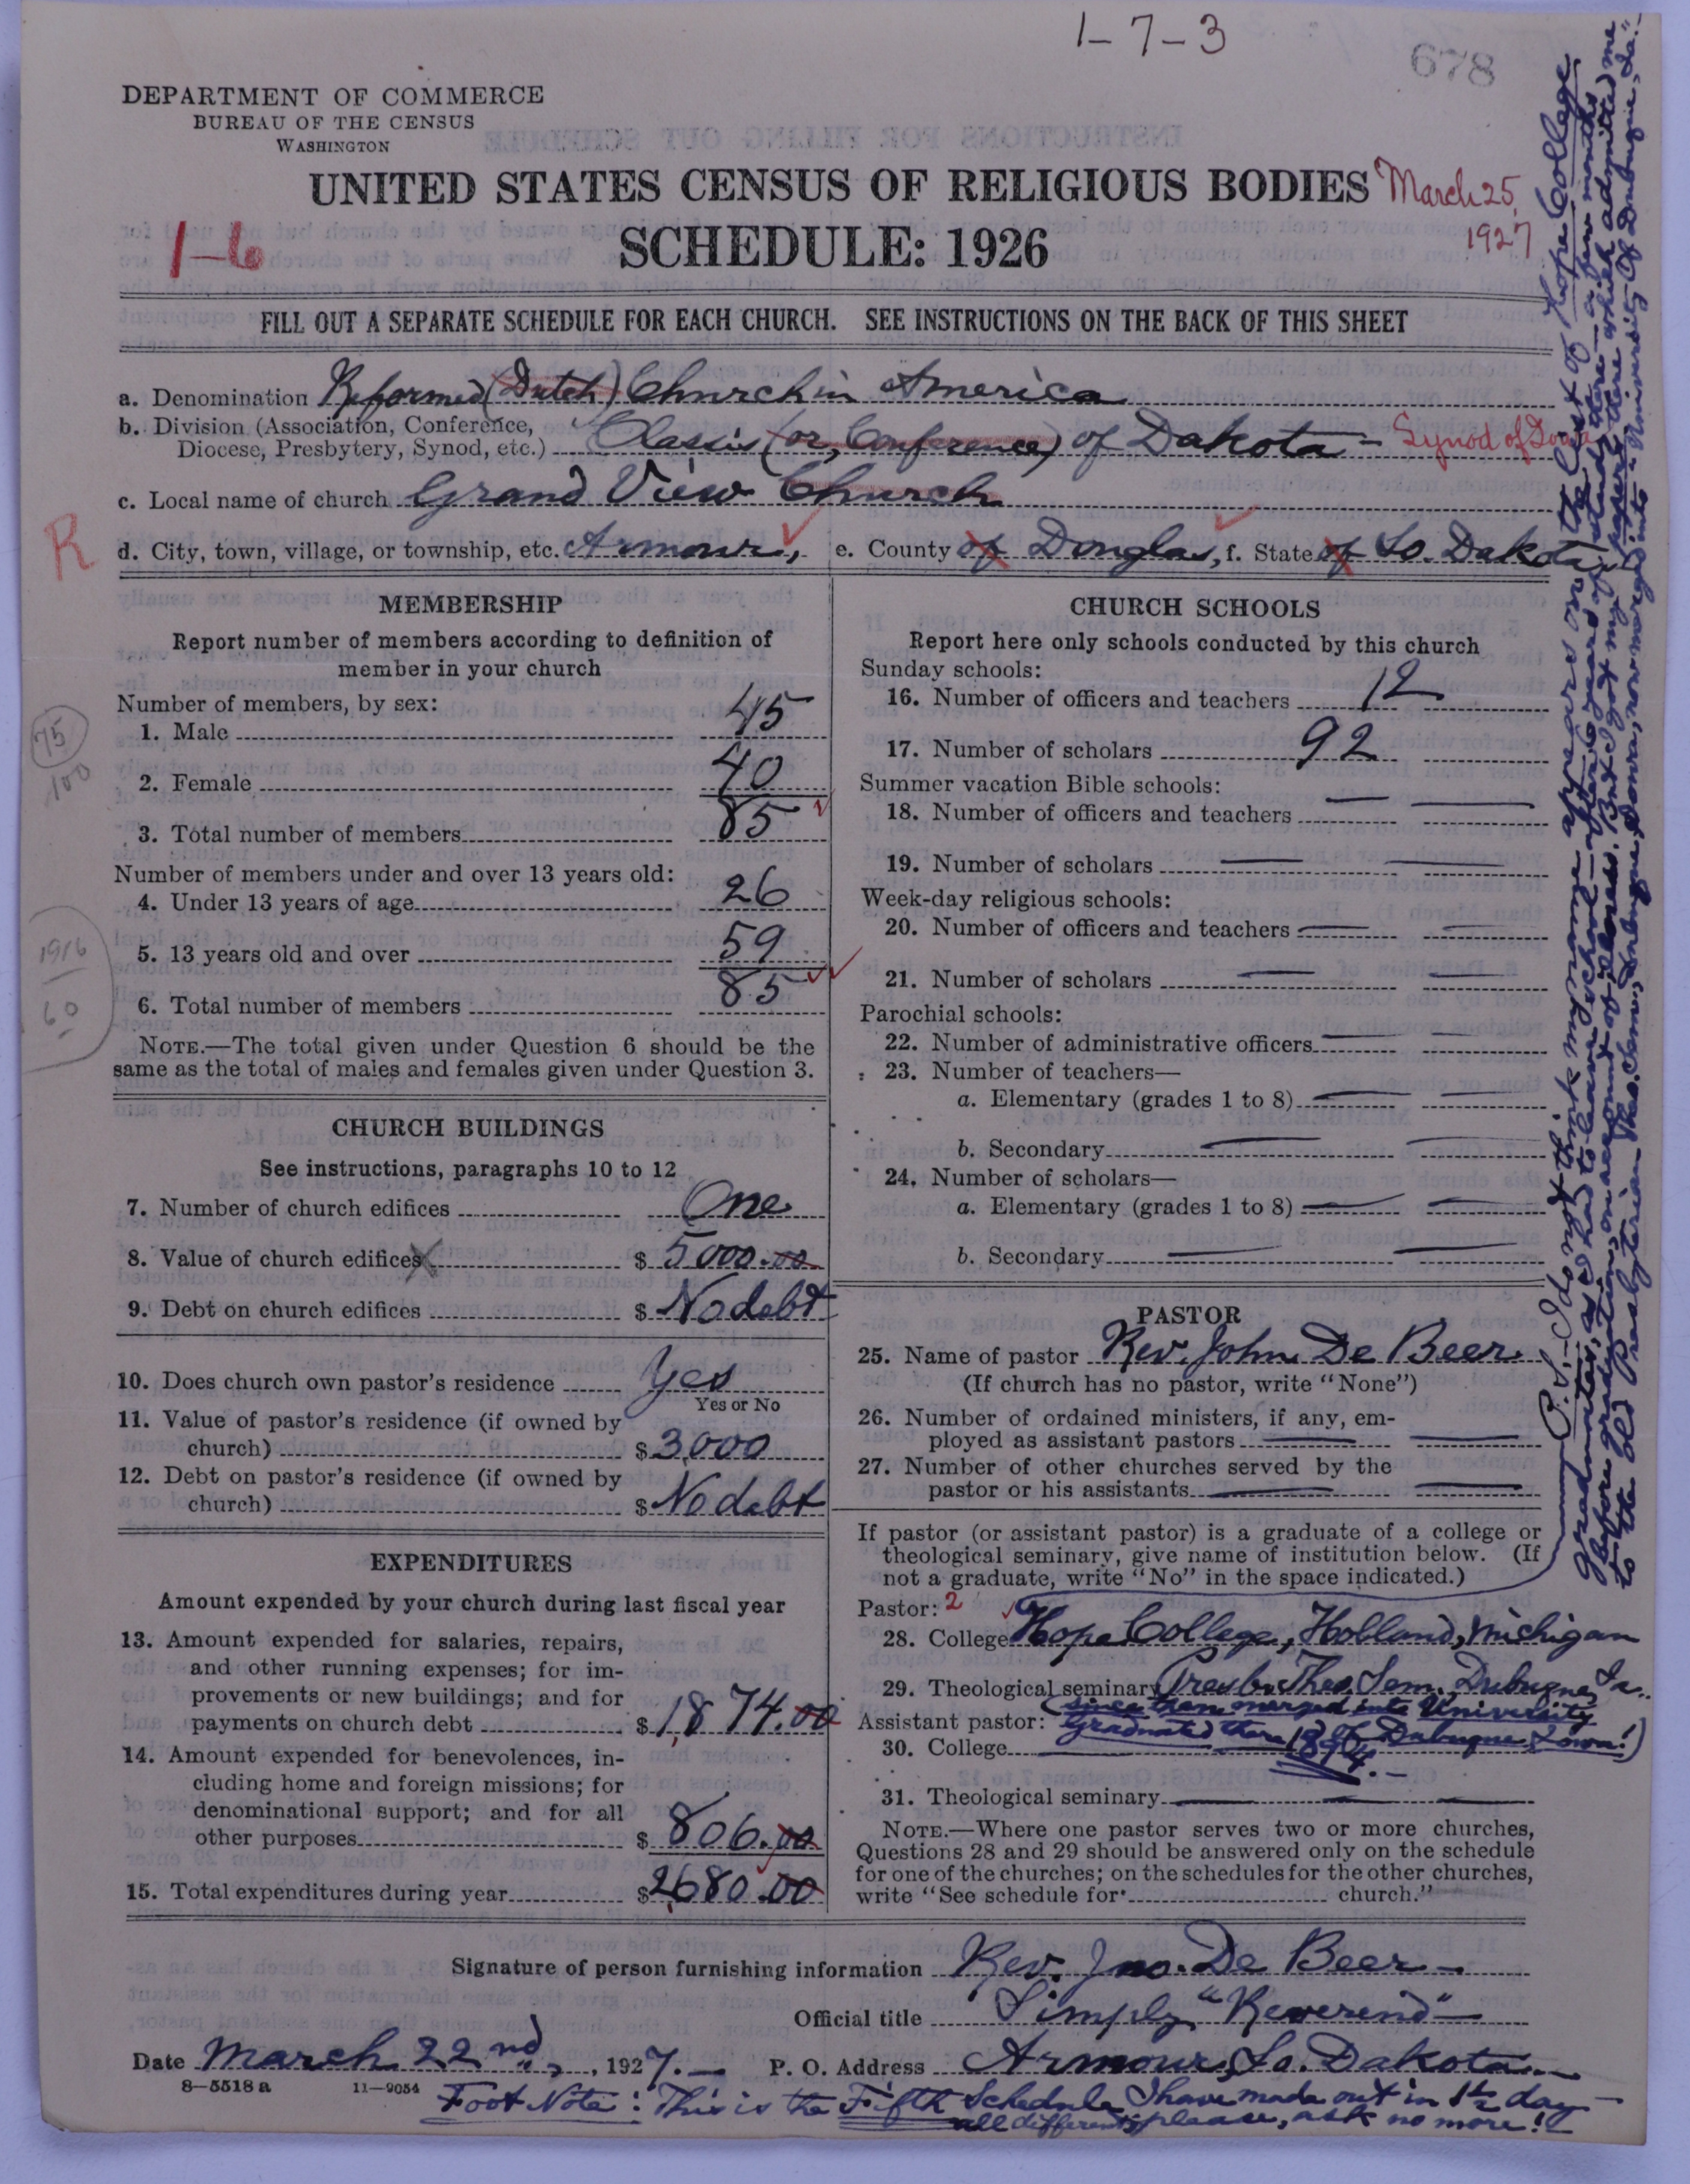 1-7-3
678
DEPARTMENT OF COMMERCE
BUREAU OF THE CENSUS
WASHINGTON
UNITED STATES CENSUS OF RELIGIOUS BODIES March 25, 1927
1-6
SCHEDULE: 1926
FILL OUT A SEPARATE SCHEDULE FOR EACH CHURCH. SEE INSTRUCTIONS ON THE BACK OF THIS SHEET
a. Denomination Reformed (Dutch) Church in America
b. Division (Association, Conference,
Diocese, Presbytery, Synod, etc.) Classis (or, Conference) of Dakota - Synod of Iowa
c. Local name of church Grand View Church
R
d. City, town, village, or township, etc. Armour, e. County of Douglas, f. State of So. Dakota
MEMBERSHIP
Report number of members according to definition of
member in your church
Number of members, by sex:
1. Male 45
75
100
2. Female 40
3. Total number of members 85
Number of members under and over 13 years old:
4. Under 13 years of age 26
1916
60
5. 13 years old and over 59
6. Total number of members 85
NOTE.—The total given under Question 6 should be the
same as the total of males and females given under Question 3.
CHURCH BUILDINGS
See instructions, paragraphs 10 to 12
7. Number of church edifices One
8. Value of church edifices $ 5000.00
9. Debt on church edifices $ No debt
10. Does church own pastor's residence Yes
Yes or No
11. Value of pastor's residence (if owned by
church) $ 3,000
12. Debt on pastor's residence (if owned by
church) $ No debt
EXPENDITURES
Amount expended by your church during last fiscal year
13. Amount expended for salaries, repairs,
and other running expenses; for im-
provements or new buildings; and for
payments on church debt $ 1,874.00
14. Amount expended for benevolences, in-
cluding home and foreign missions; for
denominational support; and for all
other purposes $ 806.00
15. Total expenditures during year $ 2,680.00
CHURCH SCHOOLS
Report here only schools conducted by this church
Sunday schools:
16. Number of officers and teachers 12
17. Number of scholars 92
Summer vacation Bible schools:
18. Number of officers and teachers
19. Number of scholars
Week-day religious schools:
20. Number of officers and teachers
21. Number of scholars
Parochial schools:
22. Number of administrative officers
23. Number of teachers—
a. Elementary (grades 1 to 8)
b. Secondary
24. Number of scholars—
a. Elementary (grades 1 to 8)
b. Secondary
PASTOR
25. Name of pastor Rev. John De Beer
(If church has no pastor, write "None")
26. Number of ordained ministers, if any, em-
ployed as assistant pastors
27. Number of other churches served by the
pastor or his assistants
If pastor (or assistant pastor) is a graduate of a college or
theological seminary, give name of institution below. (If
not a graduate, write "No" in the space indicated.)
Pastor: 2
28. College Hope College, Holland, Michigan
29. Theological seminary Presb. Theo. Sem. Dubuque, Ia.
(since then merged into University
Assistant pastor: of Dubuque, Iowa!)
Graduated there 1894.-
30. College
31. Theological seminary
NOTE.—Where one pastor serves two or more churches,
Questions 28 and 29 should be answered only on the schedule
for one of the churches; on the schedules for the other churches,
write "See schedule for church."
P.S.- I do not think my name appears on the list of Hope College
graduates, as I had to leave school - after 6 years of study there - a few months
before graduation, on account of illness. But I got my papers there which admitted me
to the old Presbyterian Theo. Sem., Dubuque, Iowa, now merged into "University of Dubuque, Ia."
Signature of person furnishing information Rev. Jno. De Beer
Official title Simply "Reverend"
Date March 22nd, 1927. P. O. Address Armour, So. Dakota
8—5518 a 11—9054
Foot Note: This is the Fifth Schedule I have made out in 1½ day
all different; please, ask no more!